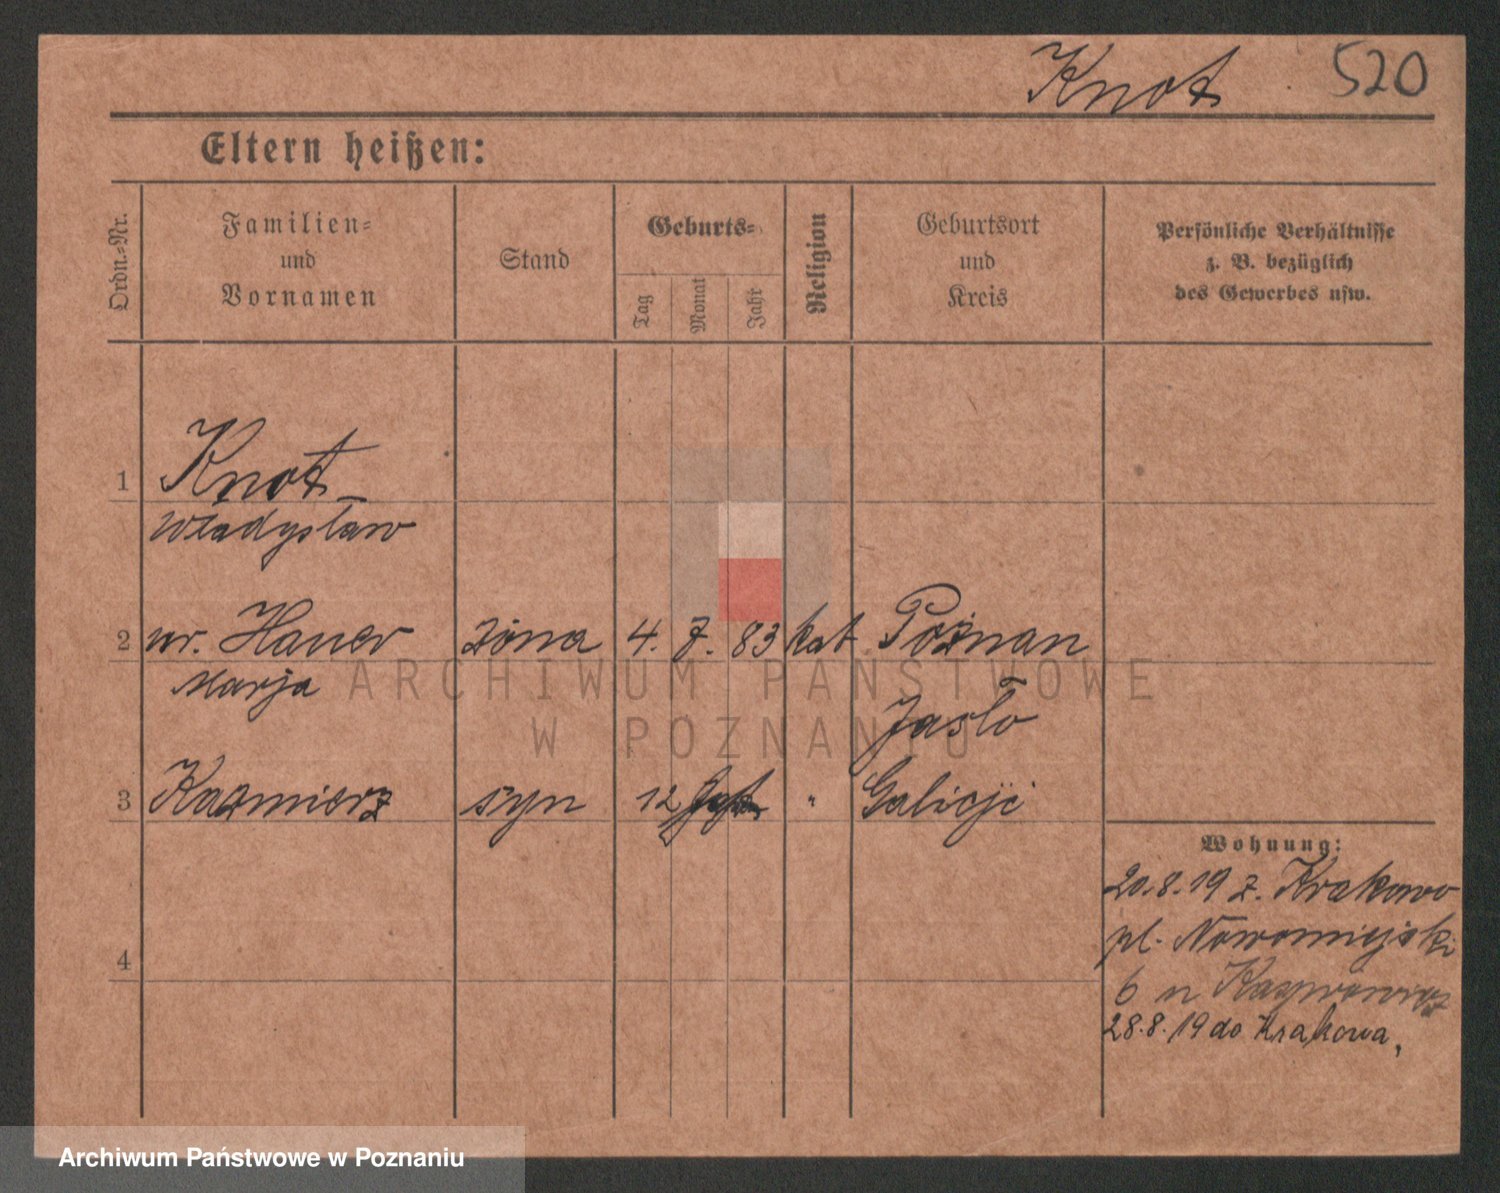 Knot 520
Eltern heißen:
Ordn.-Nr.
Familien-
und
Vornamen
Stand
Geburts-
Tag
Monat
Jahr
Religion
Geburtsort
und
Kreis
Persönliche Verhältnisse
z. B. bezüglich
des Gewerbes usw.
1 Knot
Władysław
2 ur. Hauer żona 4. 7. 83 kat Poznan
Marja
Jasło
3 Kazmierz syn 12 " Galicji
4
Wohnung:
20.8.19 z. Krakowa
pl. Nowomiejski
6 u
28.8.19 do Krakowa,
ARCHIWUM PAŃSTWOWE
W POZNANIU
Archiwum Państwowe w Poznaniu